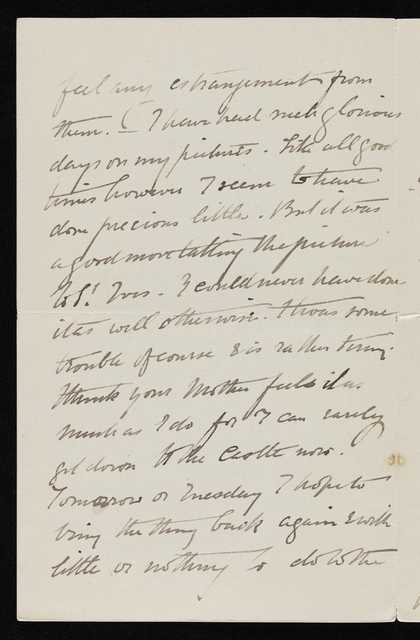 feel any estrangement from
them. ( I have had such glorious
days on my pictures. Like all good
times however I seem to have
done precious little. But it was
a good move taking the picture
to St Ives. I could never have done
it as well otherwise. It was some
trouble of course & is rather tiring.
I think your Mother feels it as
much as I do for I can rarely
get down to the Castle now.
Tomorrow or Tuesday I hope to
bring the thing back again & with
little or nothing to do to the